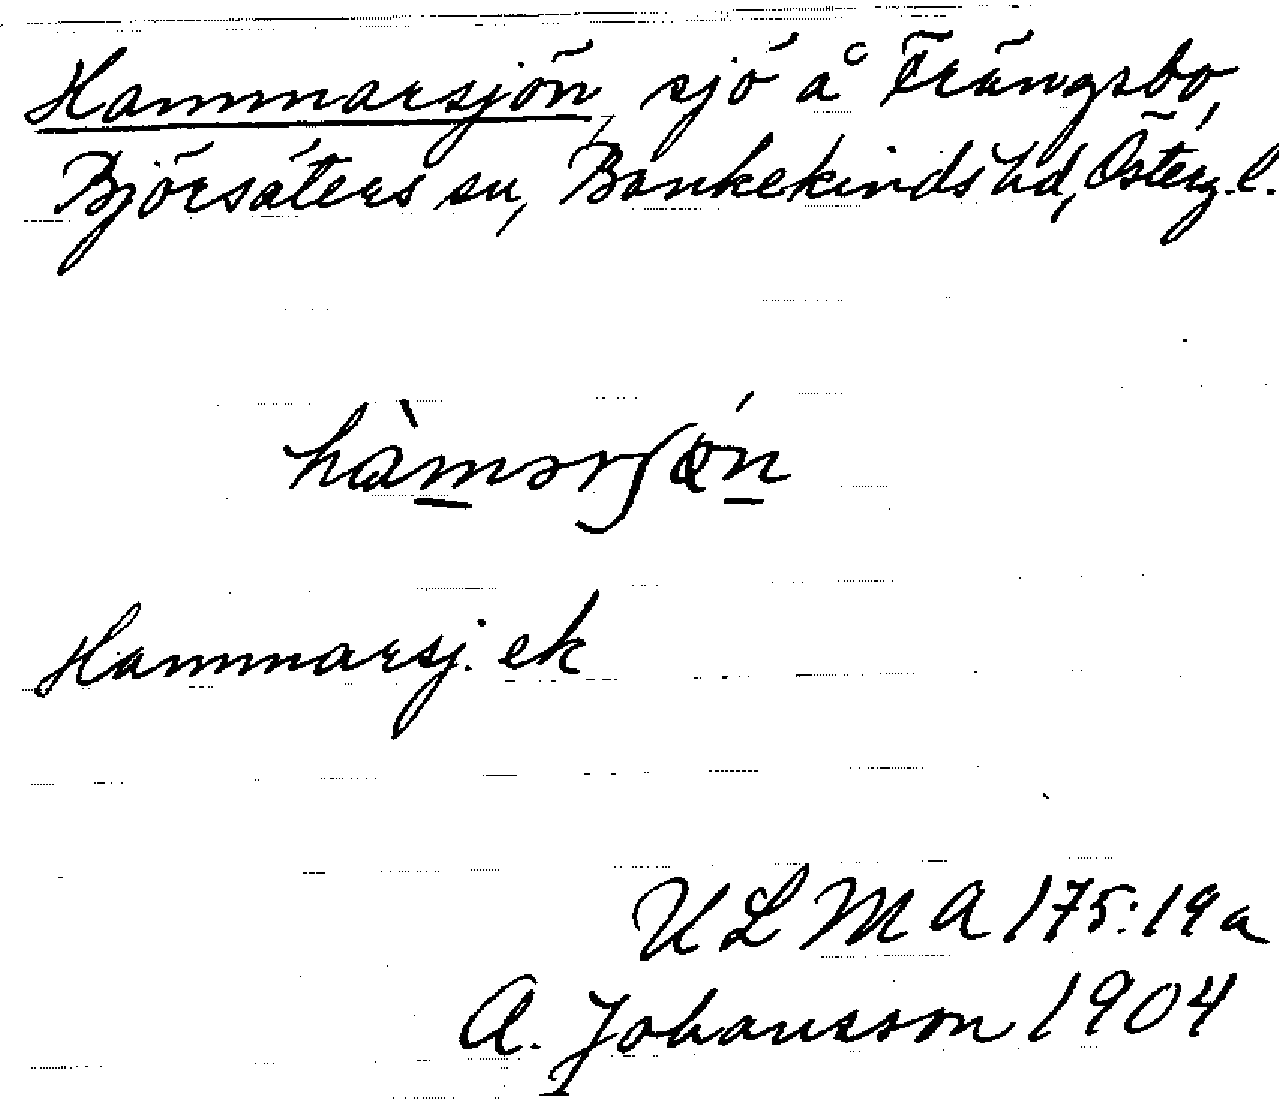 Hammarsjön, sjö å Trängsbo,
Björsäters sn, Bankekinds hd, Österg.l.
hàmərʃøn
Hammarsj. ek
ULMA 175:19a
A. Johansson 1904